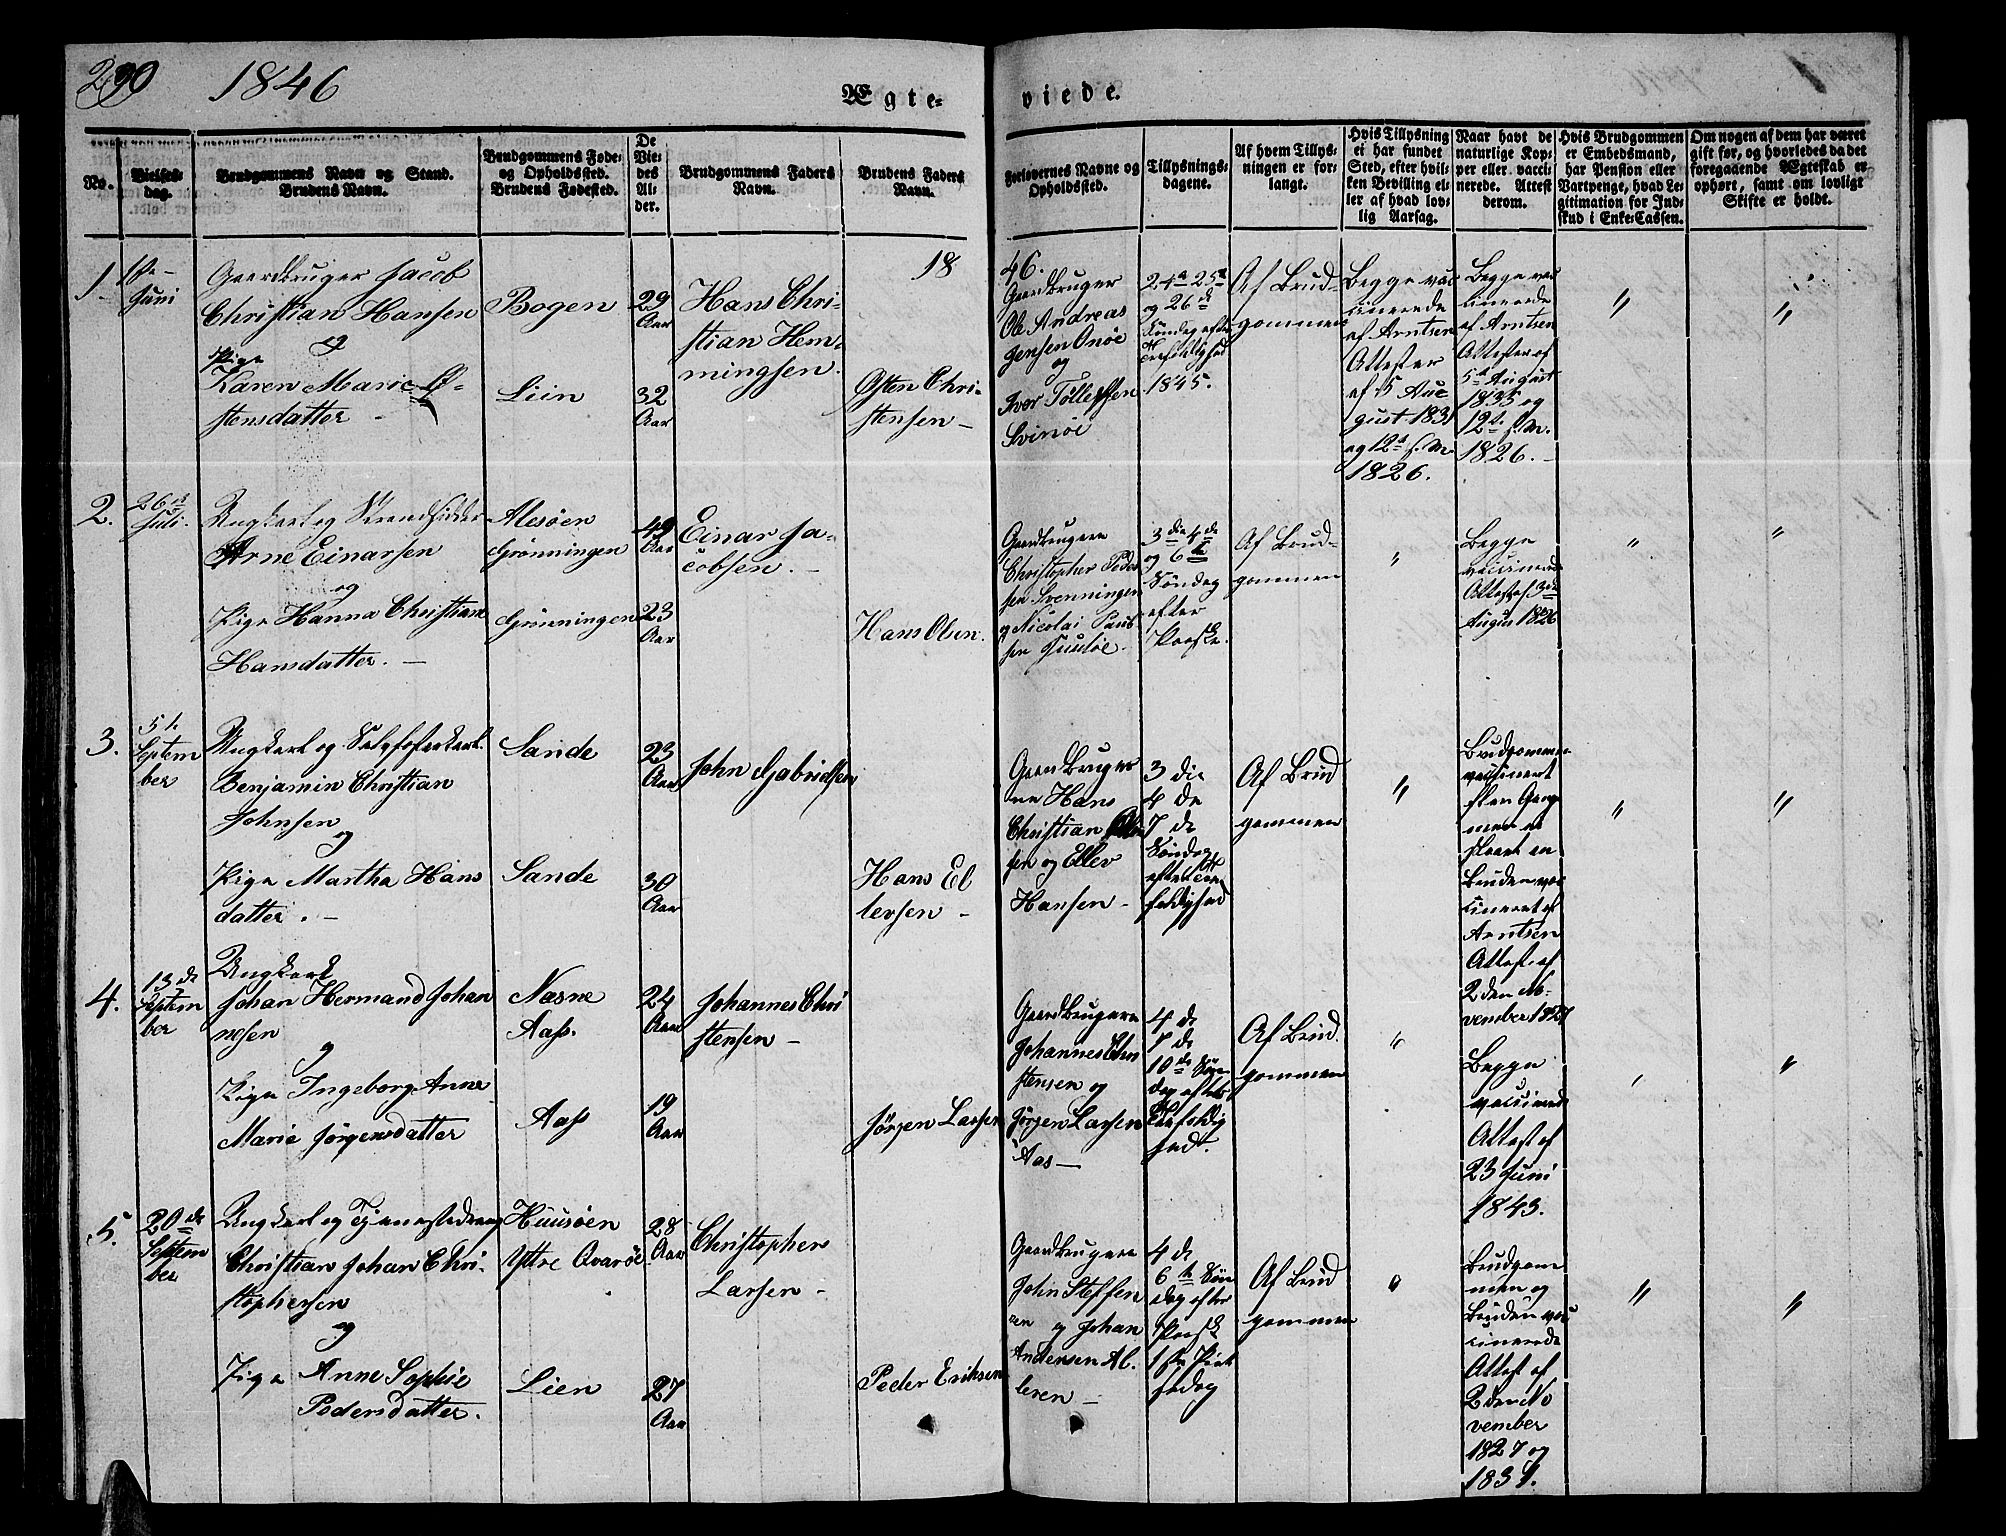 290 1846 Ægte- viede.
No.
Vielses-
dag.
Brudgommens Navn og Stand.
Brudens Navn.
Brudgommens Føde-
og Opholdssted.
Brudens Fødested.
De
Vie-
des
Al-
der.
Brudgommens Faders
Navn.
Brudens Faders
Navn.
Forlovernes Navne og
Opholdsted.
Tillysnings-
dagene.
Af hvem Tillys-
ningen er for-
langt.
Hvis Tillysning
ei har fundet
Sted, efter hvil-
ken Bevilling el-
ler af hvad lov-
lig Aarsag.
Naar havt de
naturlige Kop-
per eller vacci-
nerede. Attest
derom.
Hvis Brudgommen
er Embedsmand,
har Pension eller
Vartpenge, hvad Le-
gitimation for Ind-
skud i Enke-Cassen.
Om nogen af dem har været
gift før, og hvorledes da det
foregaaende Ægteskab er
ophørt, samt om lovligt
Skifte er holdt.
18 46.
1
Juni
Gaardbruger Jacob
Christian Hansen
&
Pige
Karen Marie Ø-
stensdatter -
Bogen
Liin
29
Aar
32
Aar
Hans Chri-
stian Hem-
mingsen.
Østen Chri-
stensen -
Gaardbruger
Ole Andreas
Jensen Onøe
og
Iver Tollefsen
Svinøe
24de 25de
og 26de
Søndag efter
Trefoldighed
1845.
Af Brud-
gommen
Begge vac
cinerede
af Arntsen
Attester
af 5 Au-
gust 183
og 12te f. M.
1826.
Begge vac
cinerede
af Arntsen
Attester af
5te August
1835 og
12te f. M.
1826. -
"
"
2.
26de
Juli.
Ungkarl og Strandsidder
Arne Einarsen
og
Pige Hanna Christian
Hansdatter. -
Alesøen
Grønningen
Grønningen
49
Aar
23
Aar
Einar Ja-
cobsen. -
Hans Olsen.
Gaardbrugere
Christopher Peder
sen Svenningen
og Nicolai Paul-
sen Huusøe.
3die 4de
og 6te
Søndag
efter
Paaske.
Af Brud-
gommen
"
Begge
vaccinerede
Attest af 3die
August 1826
"
"
3.
5te
Septem
ber
Ungkarl og
Benjamin Christian
Johnsen
og
Pige Martha Hans
datter. -
Sande
Sande
23
Aar
30
Aar
John Gabrielsen
Hans El
levsen -
Gaardbruger
ne Hans
Christian
sen og Ellev
Hansen -
3 die
4 de
7 de
Søndag
efter Tre
foldighed
Af Brud
gommen
"
Brudgommen
vaccineret
Bruden vac
cineret af
Arntsen
Attest af
2den No-
vember
"
"
4.
13de
Septem
ber
Ungkarl
Johan Hermand Johan
nesen
og
Pige Ingeborg Anne
Marie Jørgensdatter
Næsne
Aas.
Aas
24
Aar
19
Aar
Johannes Chri
stensen -
Jørgen Larsen
Gaardbrugere
Johannes Chri
stensen og
Jørgen Larsen
Aas -
4 de
7 de
10de Søn
dag efter
Trefoldig
hed.
Af Brud.
gommen
"
Begge
vaccinerede
Attest af
23 Juni
1843.
"
"
5.
20de
Septem
ber
Ungkarl og Tjenestedreng
Christian Johan Chri-
stophersen
og
Pige Anne Sophie
Pedersdatter.
Huusøen
Yttre Qvarøe
Lien
28
Aar
27
Aar
Christopher
Larsen -
Peder Eriksen
Gaardbrugere
John Steffen
sen og Johan
Andersen Al-
teren -
4 de
6te Søn
dag efter
Paaske
1ste Pint
sedag
Af Brud
gommen
"
Brudgom
men og
Bruden vac
cinerede
Attest af
2den No
vember
1827 og
1831.
"
"